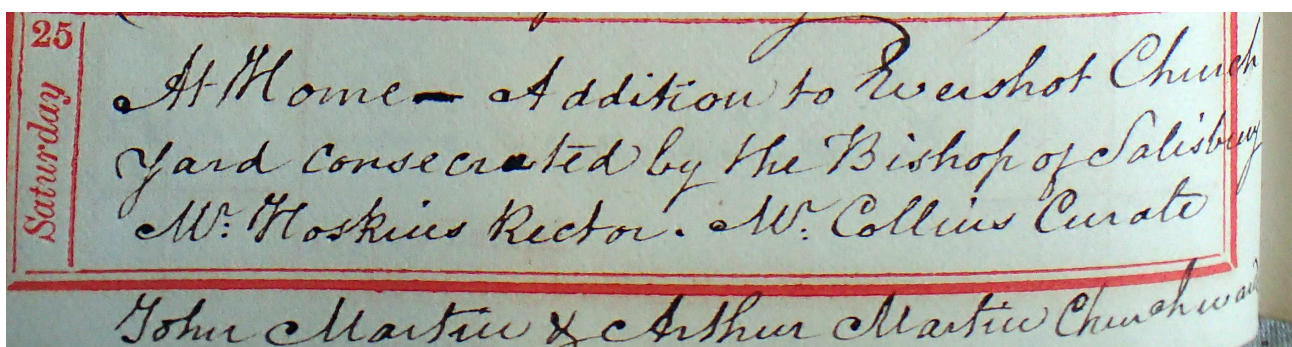 25
Saturday
At Home - Addition to Evershot Church
Yard consecrated by the Bishop of Salisbury
Mr. Hoskins Rector. Mr. Collins Curate
John Martin & Arthur Martin Churchward